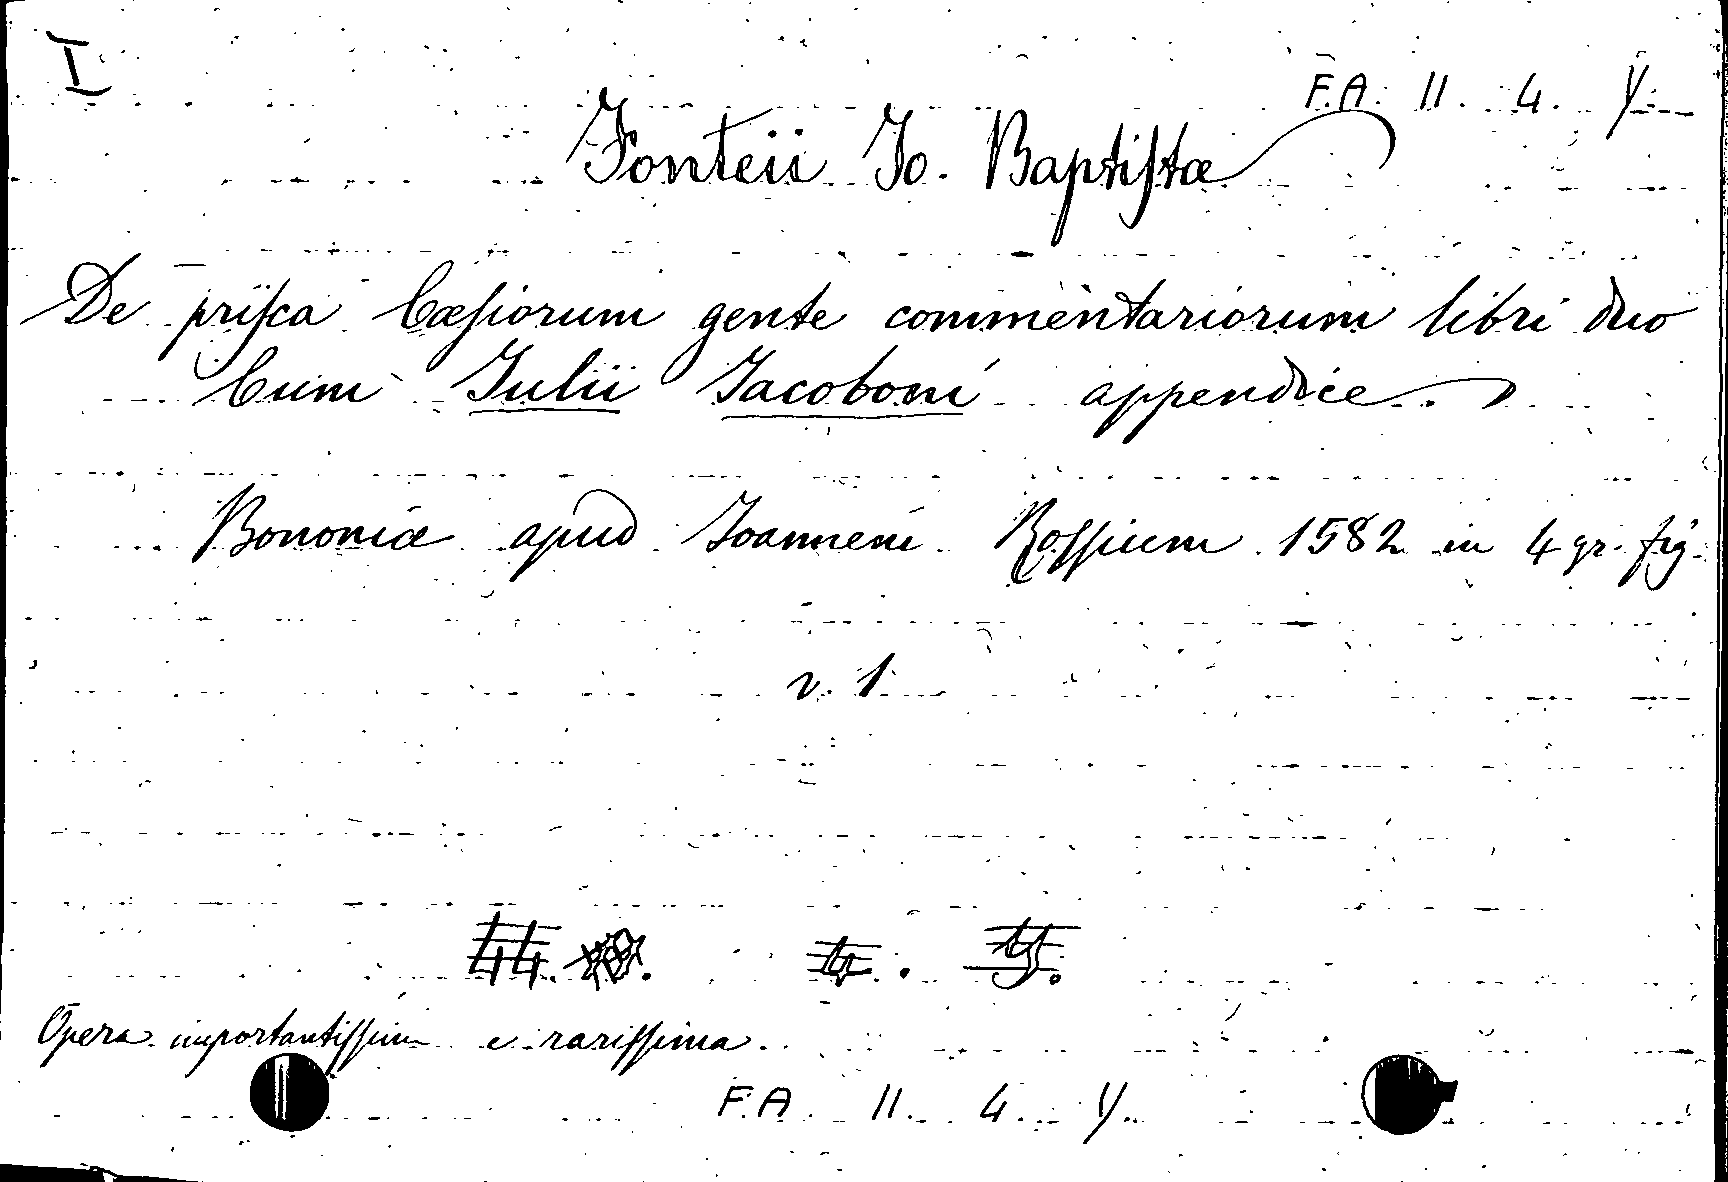 I
F.A. II. 4. Y.
Fonteii Jo. Baptistæ
De prisca Cæsiorum gente commentariorum libri duo
Cum Julii Jacoboni appendice.
Bononiæ apud Joannem Rossium 1582 in 4 gr. fig.
v. 1
44. 4. Y.
Opera importantissima e rarissima.
F.A. II. 4. Y.